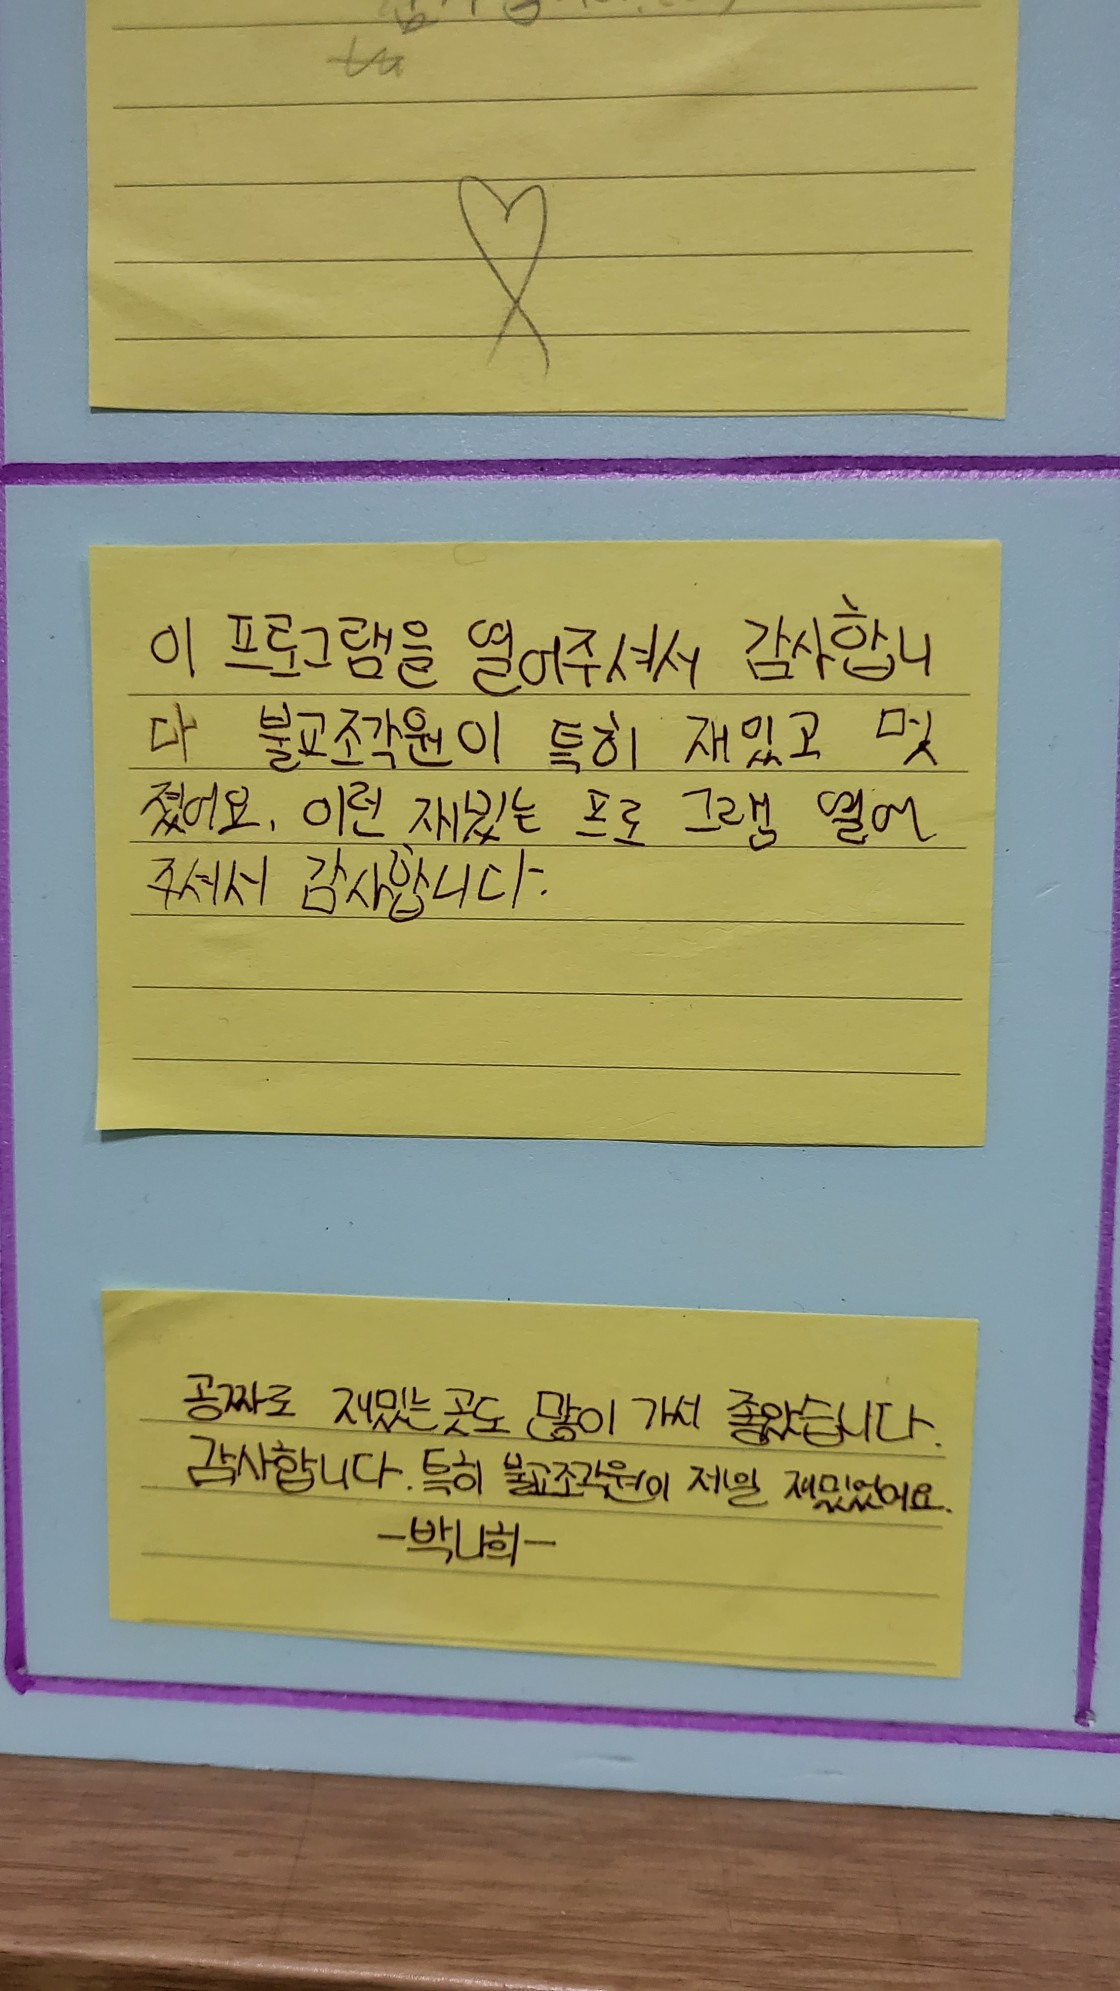 이 프로그램을 열어주셔서 감사합니
다 불교조각원이 특히 재밌고 멋
졌어요. 이런 재밌는 프로 그램 열어
주셔서 감사합니다.
공짜로 재밌는 곳도 많이 가서 좋았습니다.
감사합니다. 특히 불교조각원이 저일 재밌었어요.
-박나희-